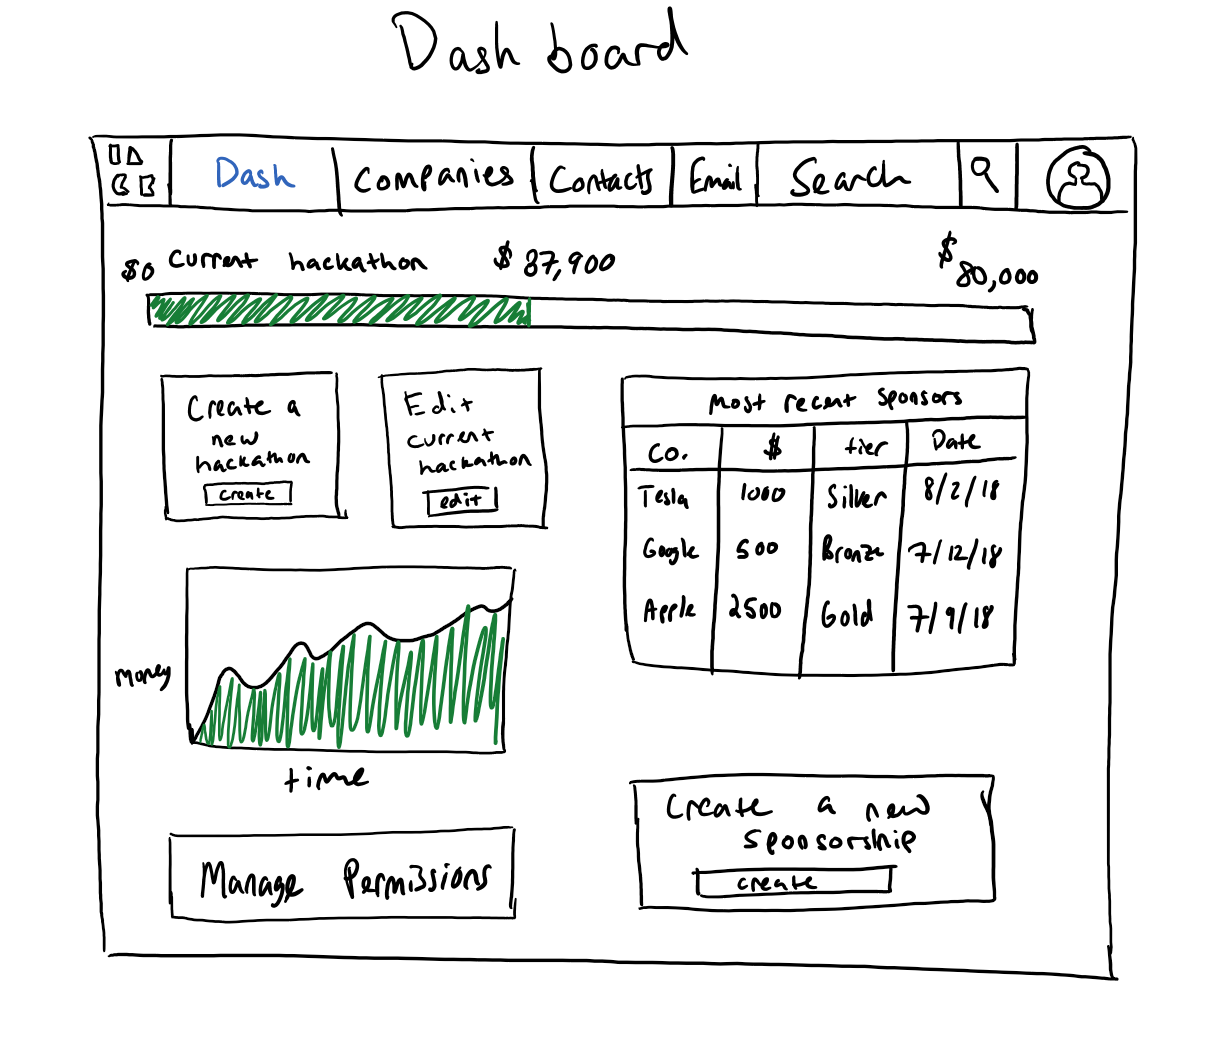 Dashboard
Dash Companies Contacts Email Search
$0 Current hackathon $ 37,900 $ 80,000
Create a
new
hackathon
create
Edit
current
hackathon
edit
Most recent Sponsors
Co. $ tier Date
Tesla 1000 Silver 8/2/18
Google 500 Bronze 7/12/18
Apple 2500 Gold 7/9/18
Money
time
Manage Permissions
Create a new
Sponsorship
create